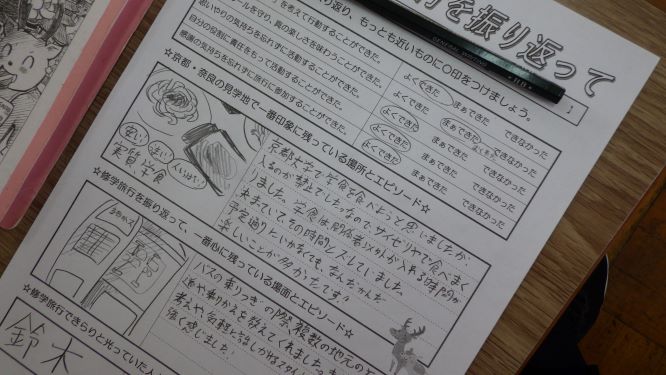 行を振り返って
り返り、もっとも近いものに○印をつけましょう。
を考えて行動することができた。 よくできた まあできた できなかった
ールを守り、真の楽しさを味わうことができた。 よくできた まあできた できなかった
思いやりの気持ちを忘れずに活動することができた。 よくできた まあできた できなかった
自分の役割に責任をもって活動することができた。 よくできた まあできた できなかった
感謝の気持ちを忘れずに旅行に参加することができた。 よくできた まあできた できなかった
☆京都・奈良の見学地で一番印象に残っている場所とエピソード☆
安い
実質、学食
京都大学で学食を食べようと思いましたが、
入るのが禁止でしたので、サイゼリヤで食べまく
りました。学食は関係者以外が入れる時間が
決まっていてその時間とズレていました。
予定通りといかなくても、なんだかんだ
楽しいことが多かったです!
☆修学旅行を振り返って、一番心に残っている場面とエピソード☆
バスの乗りつぎの際、複数の地元の
道や乗りかえを教えてくれました。
強く感じました!
☆修学旅行できらりと光っていた人
鈴木